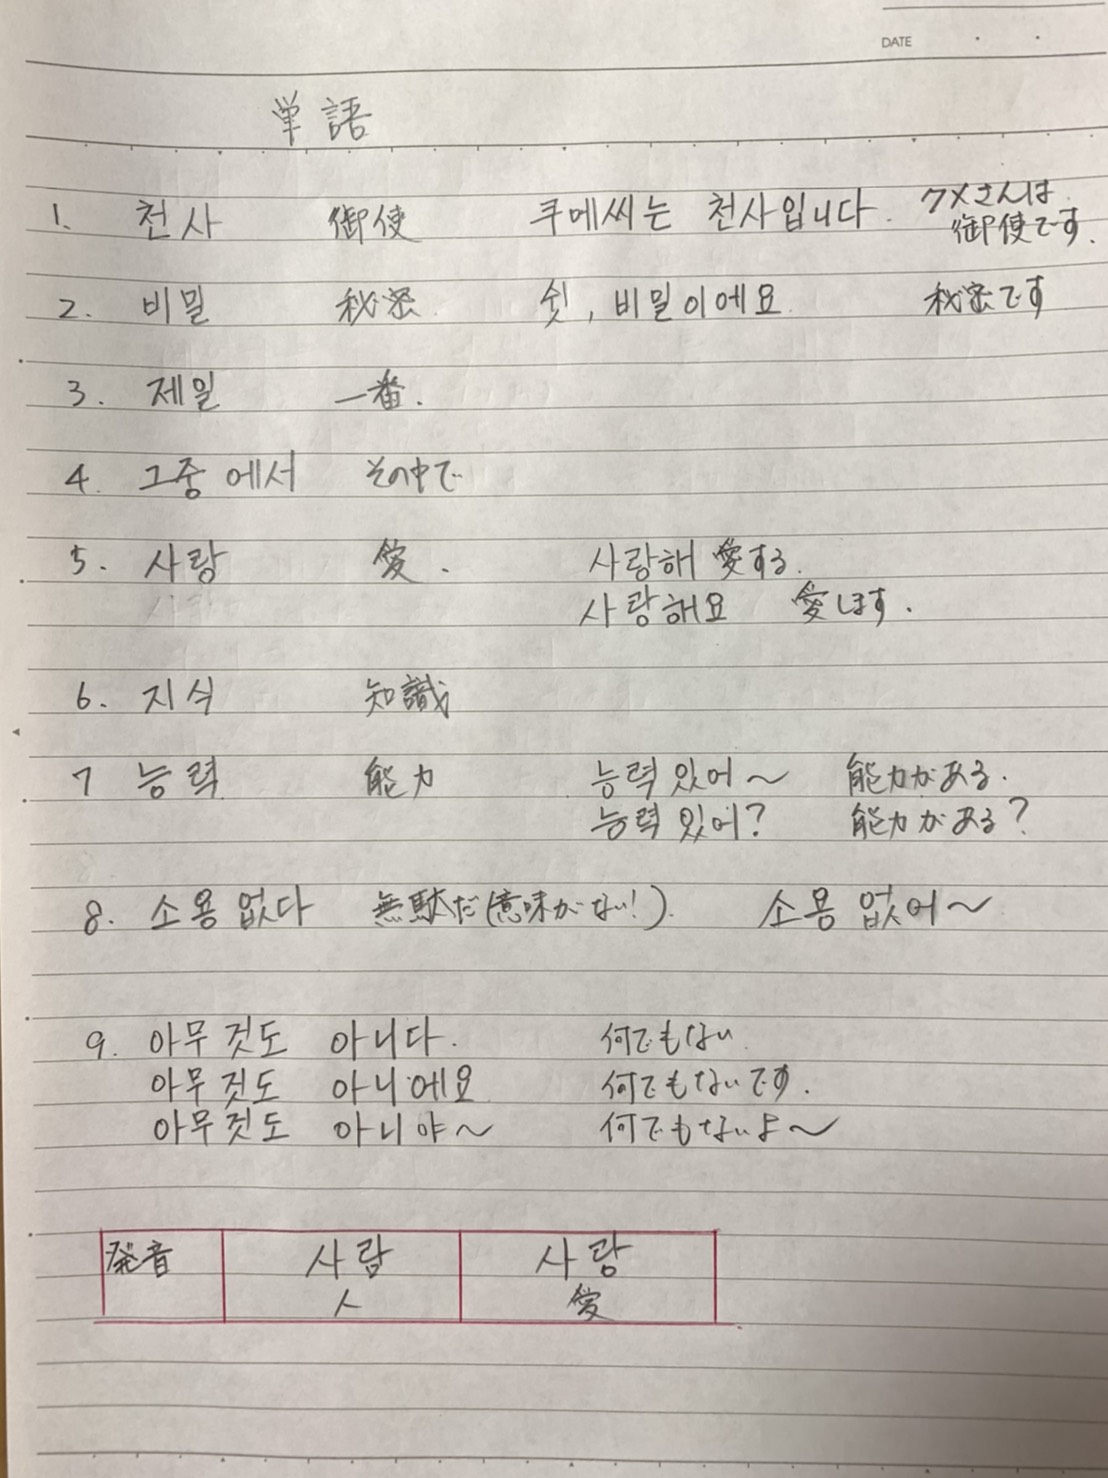 DATE
単語
1. 천사 御使 쿠메씨는 천사입니다. クメさんは
御使です.
2. 비밀 秘密. 쉿, 비밀이에요 秘密です
3. 제일 一番.
4. 그중에서 その中で
5. 사랑 愛. 사랑해 愛する.
사랑해요 愛します.
6. 지식 知識
7 능력 能力 능력 있어~ 能力がある.
능력 있어? 能力がある?
8. 소용없다 無駄だ(意味がない!). 소용 없어~
9. 아무것도 아니다. 何でもない
아무것도 아니에요 何でもないです.
아무것도 아니야~ 何でもないよ~
発音 사람 사랑
人 愛